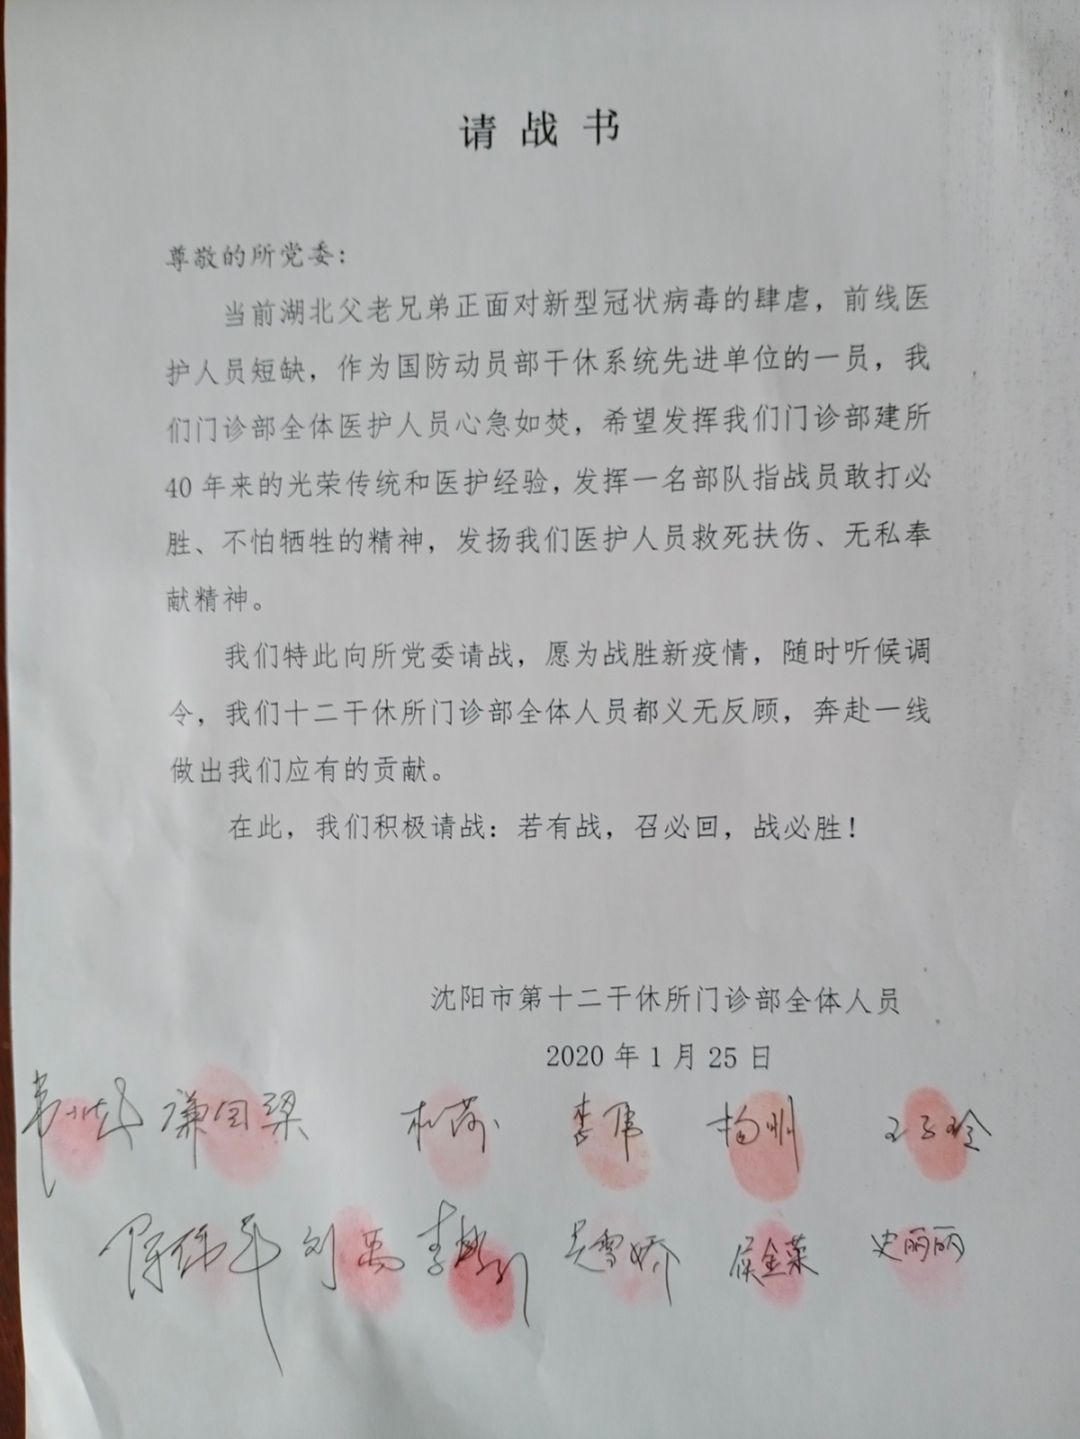 请战书
尊敬的所党委：
当前湖北父老兄弟正面对新型冠状病毒的肆虐，前线医
护人员短缺，作为国防动员部干休系统先进单位的一员，我
们门诊部全体医护人员心急如焚，希望发挥我们门诊部建所
40年来的光荣传统和医护经验，发挥一名部队指战员敢打必
胜、不怕牺牲的精神，发扬我们医护人员救死扶伤、无私奉
献精神。
我们特此向所党委请战，愿为战胜新疫情，随时听候调
令，我们十二干休所门诊部全体人员都义无反顾，奔赴一线
做出我们应有的贡献。
在此，我们积极请战：若有战，召必回，战必胜！
沈阳市第十二干休所门诊部全体人员
2020年1月25日
李伟 杨洲
刘禹 吴雪娇 侯金荣 史丽丽